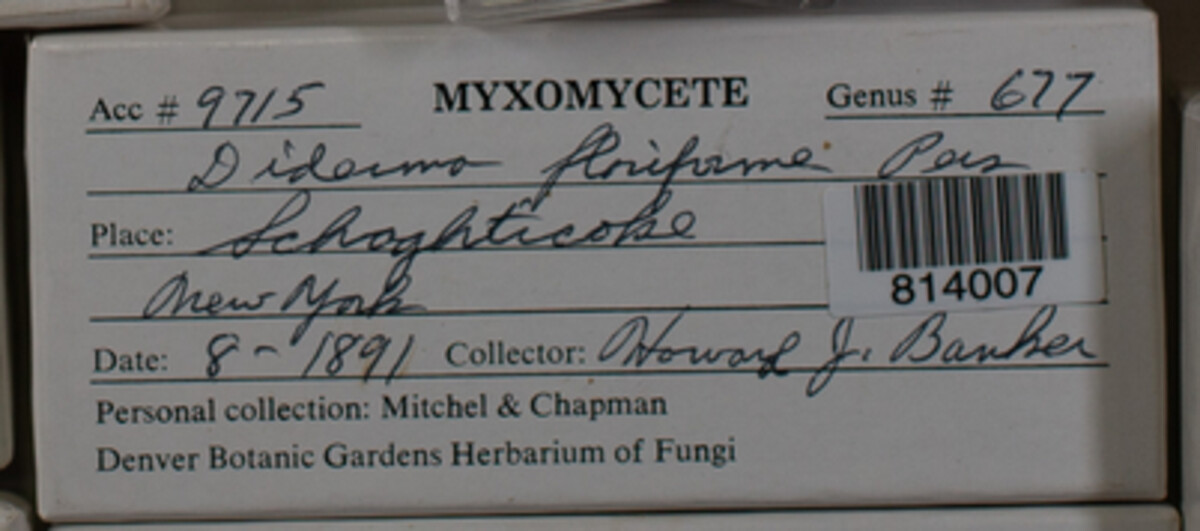 Acc # 9715 MYXOMYCETE Genus # 677
Diderma floriforme Pers
Place: Schaghticoke
814007
New York
Date: 8 - 1891 Collector: Howard J. Banker
Personal collection: Mitchel & Chapman
Denver Botanic Gardens Herbarium of Fungi